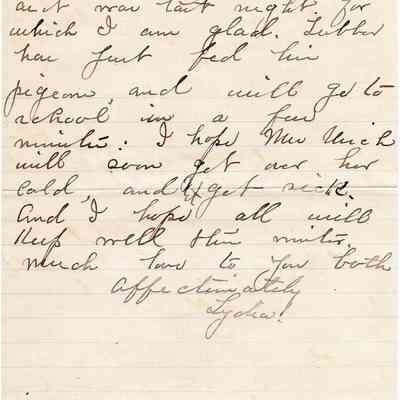 last night. for
which I am glad. Lubber
has just fed his
pigeons, and will go to
school in a few
minits: I hope Mrs
will soon get over her
cold, and get sick.
And I hope all will
Keep well this winter.
much love to you both
Affectionately
Lydia.